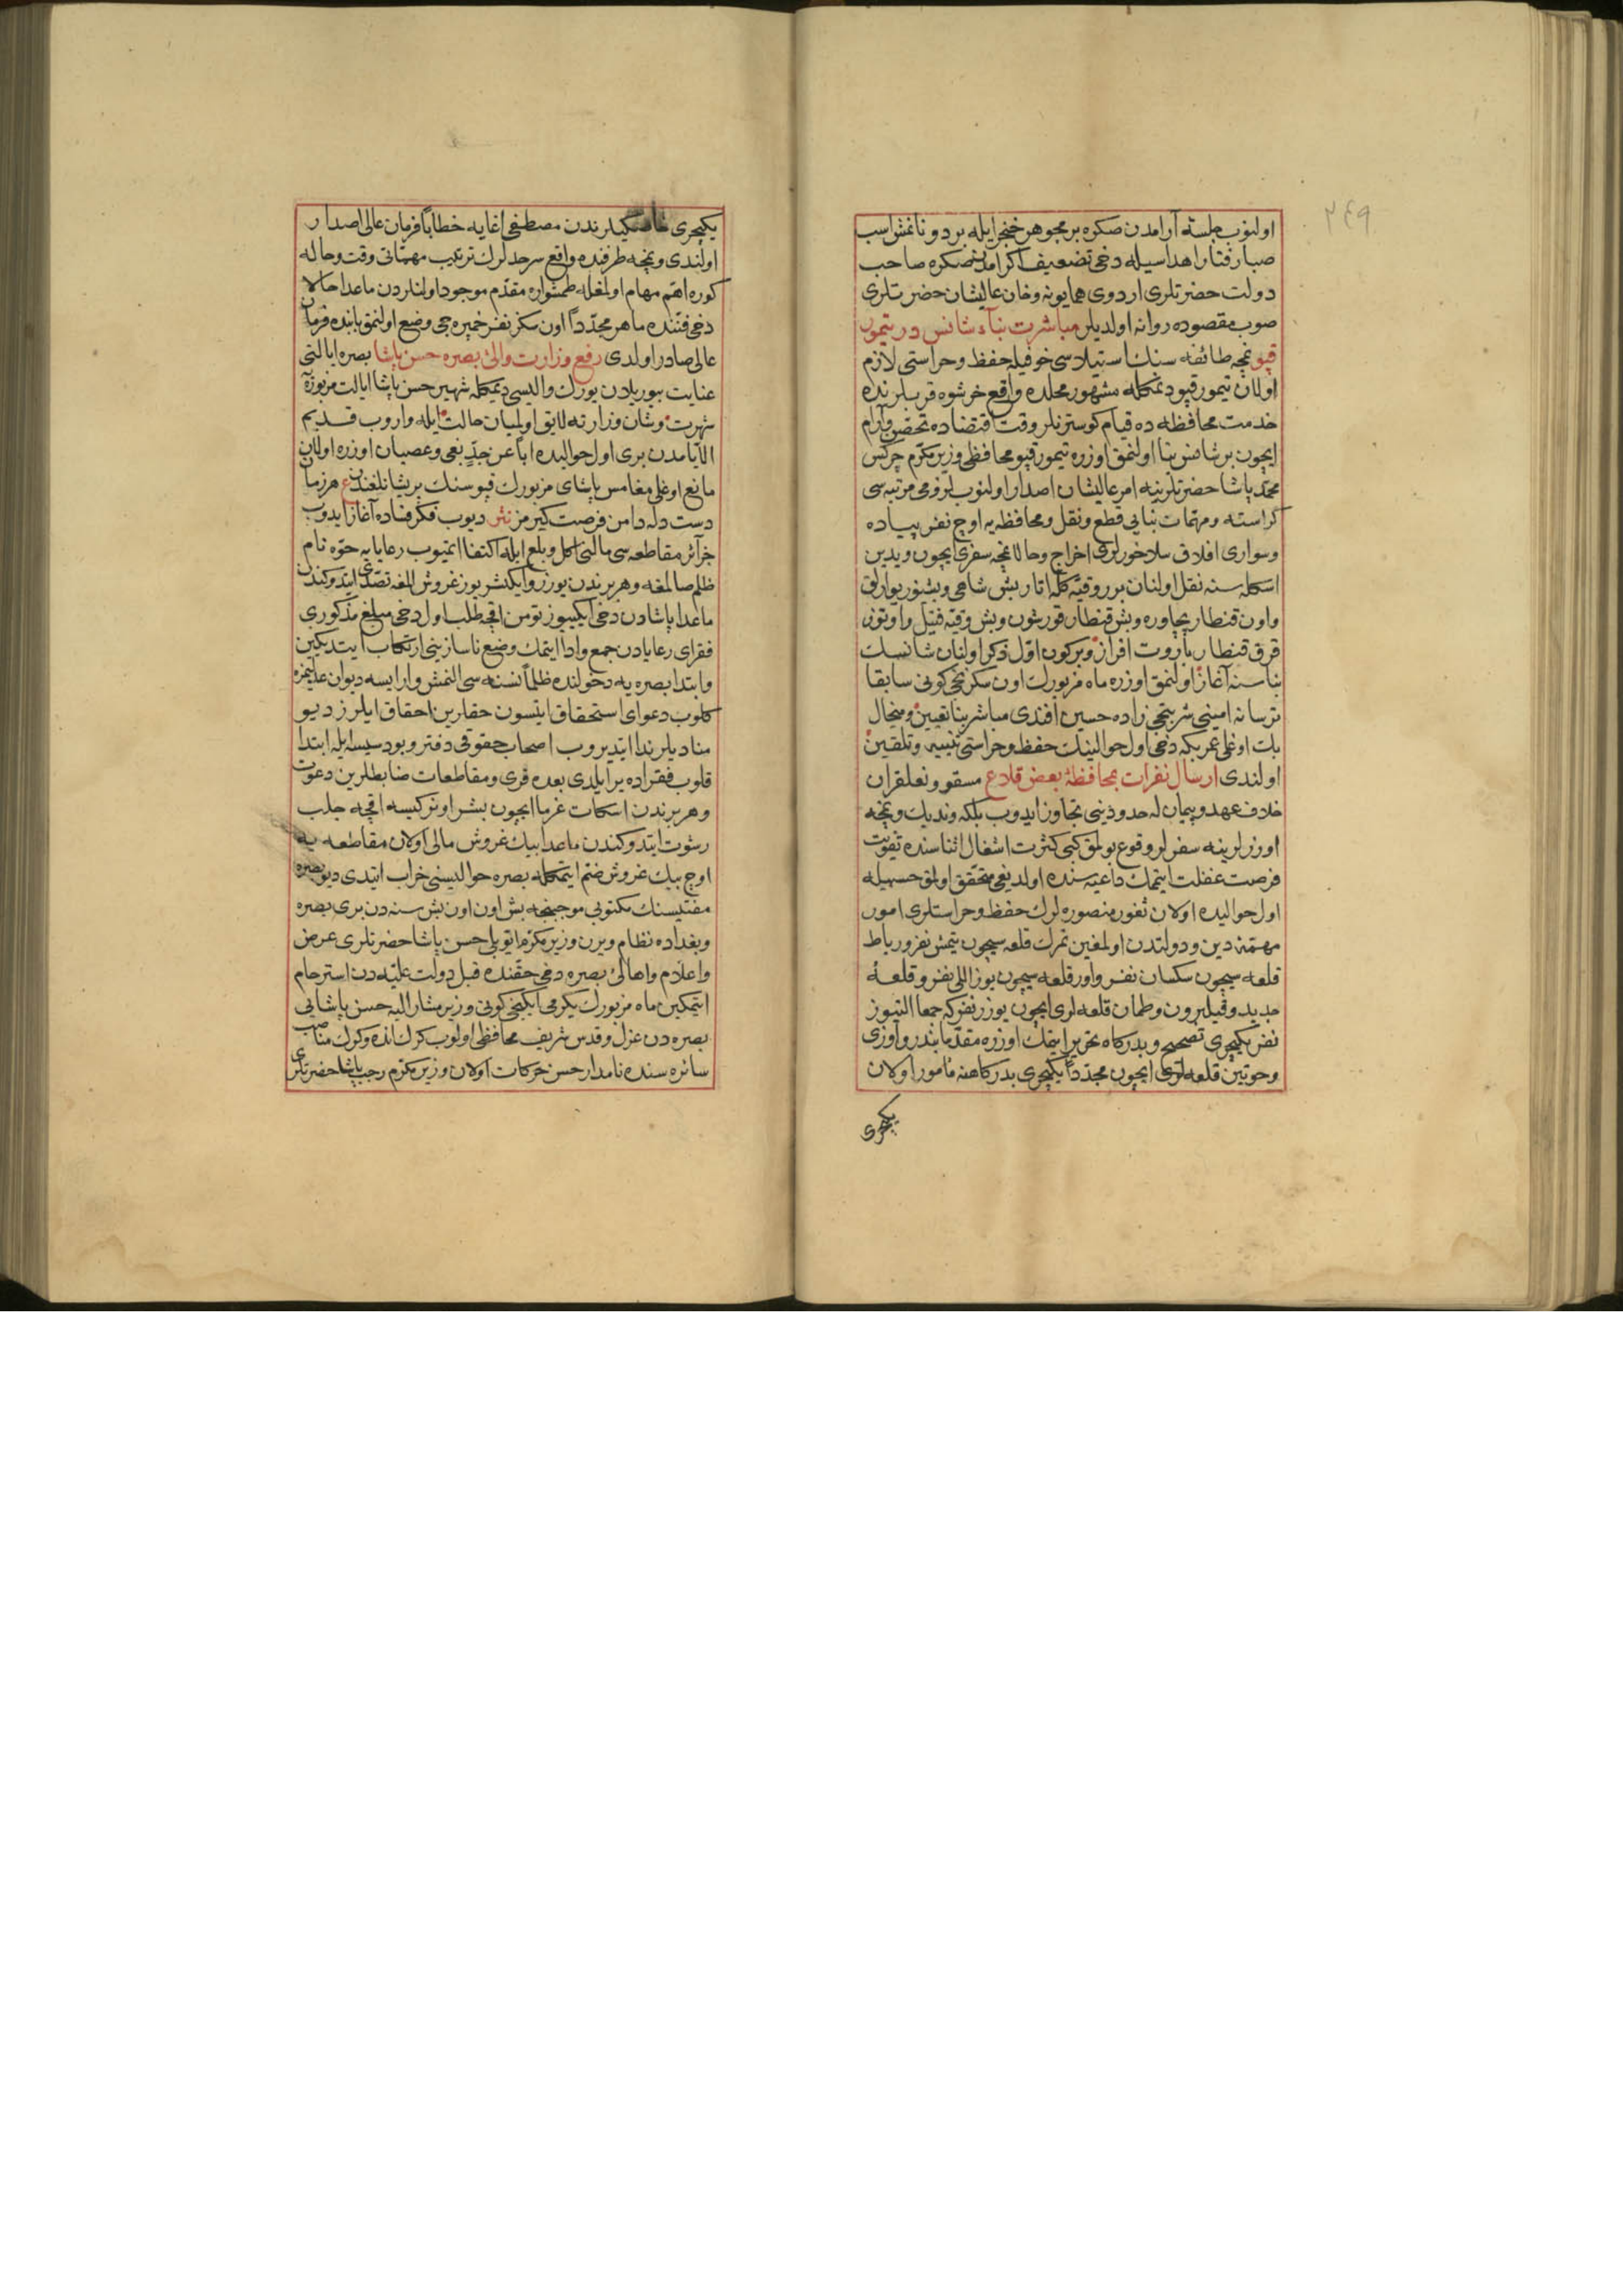 ٢٤٩
اولنوب جلسۀ آرامدن صكره بر مجوهر خنجر ايله بر دونانمش اسب
صبا رفتار اهداسيله دخى تضعيف اكرامدن صكره صاحب
دولت حضرتلرى اردوى همايونه و خان عاليشان حضرتلرى
صوب مقصوده روانه اولديلر مباشرت بناء شانس در تيمور
قپو نمچه طائفه سنك استيلاسى خوفيله حفظ و حراستى لازم
اولان تيمور قپو ديمكله مشهور محلده واقع خرشوه قربلرنده
خدمت محافظه ده قيام كوسترنلر وقت اقتضاده تحصن و آرام
ايچون بر شانس بنا اولنمق اوزره تيمور قپو محافظى وزير مكرم چركس
محمد پاشا حضرتلرينه امر عاليشان اصدار اولنوب لزومى مرتبه سى
كراسته و مهمات بنايى قطع و نقل و محافظه يه اوچ نفر پياده
و سوارى افلاق سلاخورلرى اخراج و حالا نمچه سفرى ايچون ويدين
اسكله سنه نقل اولنان برر وقيه كله اتار بش شاهى و بشنور يوارلق
و اون قنطار پچاوره و بش قنطار قورشون و بش وقيه فتيل و اوتوز
قرق قنطار باروت افراز و بر كون اول ذكر اولنان شانسك
بناسنه آغاز اولنمق اوزره ماه مزبورك اون سكزنجى كونى سابقا
ترسانه امينى شربتجى زاده حسين افندى مباشر بنا تعيين و منجال
بك اوغلى عمر بكه دخى اول حوالينك حفظ و حراستى تنبيه و تلقين
اولندى ارسال نفرات بمحافظۀ بعض قلاع مسقو و نعلقران
خلاف عهد و پيمان له حدودينى تجاوز ايدوب بلكه ونديك و نمچه
اوزرلرينه سفرلر وقوع بولمق كبى كثرت اشغال اثناسنده تفويت
فرصت غفلت ايتمك داعيه سنده اولديغى متحقق اولمق حسبيله
اول حواليده اولان ثغور منصوره لرك حفظ و حراستلرى امور
مهمۀ دين و دولتدن اولمغين تمرك قلعه سيچون يتمش نفر و رباط
قلعه سيچون سكسان نفر و اور قلعه سيچون يوز اللى نفر و قلعۀ
جديد و قيلبرون و طمان قلعه لرى ايچون يوزر نفر كه جمعا التيوز
نفر يكيچرى تصحيح و بدركاه تحرير ايتمك اوزره مقدما بندر و اوزى
و حوتين قلعه لرى ايچون مجددا يكيچرى بدركاهنه مأمور اولان
يكيچرى
يكيچرى خاصكيلرندن مصطفى اغايه خطابا فرمان عالى اصدار
اولندى و نمچه طرفنده واقع سرحدلرك ترتيب مهماتى وقت و حاله
كوره اهم مهام اولمغله طمشواره مقدم موجود اولنلردن ماعدا حالا
دخى فننده ماهر مجددا اون سكز نفر خمپره جى وضع اولنمق بابنده فرمان
عالى صادر اولدى رفع وزارت والئ بصره حسن پاشا بصره ايالتى
عنايت بيوريلان يورك واليسى ديمكله شهير حسن پاشا ايالت مزبوره
شهرت و شان وزارته لايق اولميان حالت ايله واروب قديم
الايامدن برى اول حواليده ابا عن جد بغى و عصيان اوزره اولان
مانع اوغلى مغامس پاشاى مزبورك قپوسنك پريشانلغنه هر زمان
دست دله دامن فرصت كيرمز نثر ديوب فكر فساده آغاز ايدوب
جزائر مقاطعه سى مالنى اكل و بلع ايله اكتفا ايتميوب رعايايه حوه نام
ظلم صالمغه و هر برندن يوزر و ايكيشر يوز غروش المغه تصدى ايتدوكندن
ماعدا پاشادن دخى ايكيوز تومن اقچه طلب اول دخى مبلغ مذكورى
فقراى رعايادن جمع و ادا ايتمك وضع ناسازينى ارتكاب ايتديكين
و ابتدا بصره يه دخولنده ظلما نسنه سى النمش وار ايسه ديوان عاليمزه
كلوب دعواى استحقاق ايتسون حقلرين احقاق ايلرز ديو
مناديلر ندا ايتديروب اصحاب حقوقى دفتر و بو دسيسه ايله ابتدا
قلوب فقراده ير ايلدى بعده قرى و مقاطعات ضابطلرين دعوت
و هر برندن اسكات غرما ايچون بشر اونر كيسه اقچه جلب
رشوت ايتدوكندن ماعدا بيك غروش مالى اولان مقاطعه يه
اوچ بيك غروش ضم ايتمكله بصره حواليسنى خراب ايتدى ديو بصره
مفتيسنك مكتوبى موجبنجه بش اون اون بش سنه دن برى بصره
و بغداده نظام ويرن وزير مكرم ايوبلى حسن پاشا حضرتلرى عرض
و اعلام و اهالئ بصره دخى حقنده قبل دولت عليه دن استرحام
ايتمكين ماه مزبورك يكرمى ايكنجى كونى وزير مشار اليه حسن پاشايى
بصره دن عزل و قدس شريف محافظى اولوب كرك انده و كرك مناصب
سائره سنده نامدار حسن حركات اولان وزير مكرم رجب پاشا حضرتلرى